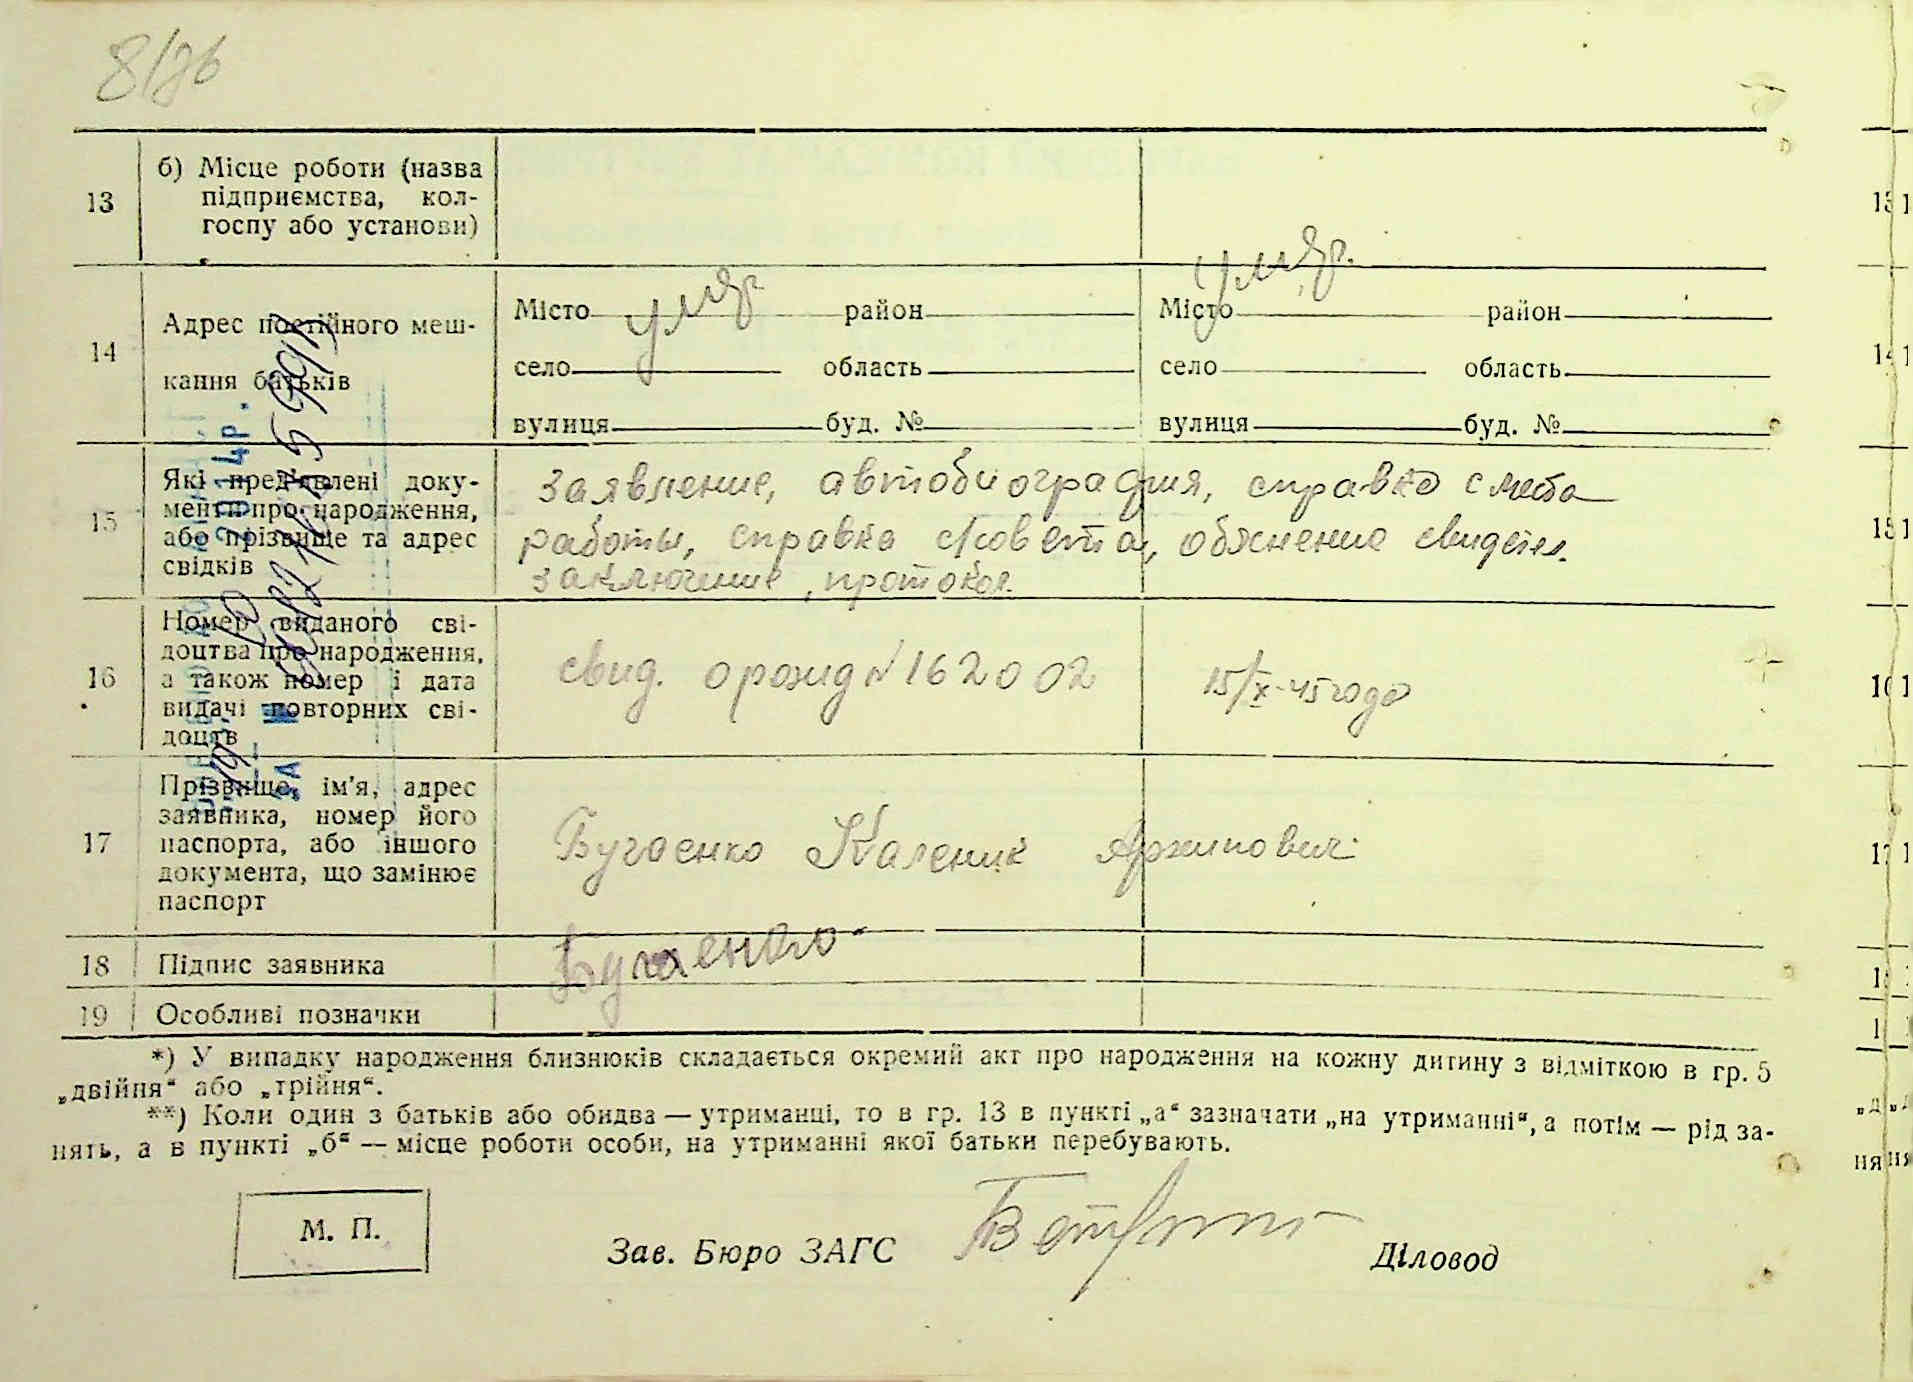 13
б) Місце роботи (назва
підприємства, кол-
госпу або установи)
14
Адрес постійного меш-
кання батьків
Місто умер район
село область
вулиця буд. №
Місто умер. район
село область
вулиця буд. №
15
Які пред'явлені доку-
менти про народження,
або прізвище та адрес
свідків
заявление, автобиография, справка с места
работы, справка с/совета, обяснение свидетел.
заключение, протокол.
16
Номер виданого сві-
доцтва про народження,
а також номер і дата
видачі повторних сві-
доцтв
свид. о рожид № 162002
15/X-45 года
17
Прізвище, ім'я, адрес
заявника, номер його
паспорта, або іншого
документа, що замінює
паспорт
Бугаенко Каленик Архипович
18
Підпис заявника
Бугаенко
19
Особливі позначки
*) У випадку народження близнюків складається окремий акт про народження на кожну дитину з відміткою в гр. 5
„двійня“ або „трійня“.
**) Коли один з батьків або обидва — утриманці, то в гр. 13 в пункті „а“ зазначати „на утриманні“, а потім — рід за-
нять, а в пункті „б“ — місце роботи особи, на утриманні якої батьки перебувають.
М. П.
Зав. Бюро ЗАГС
Діловод